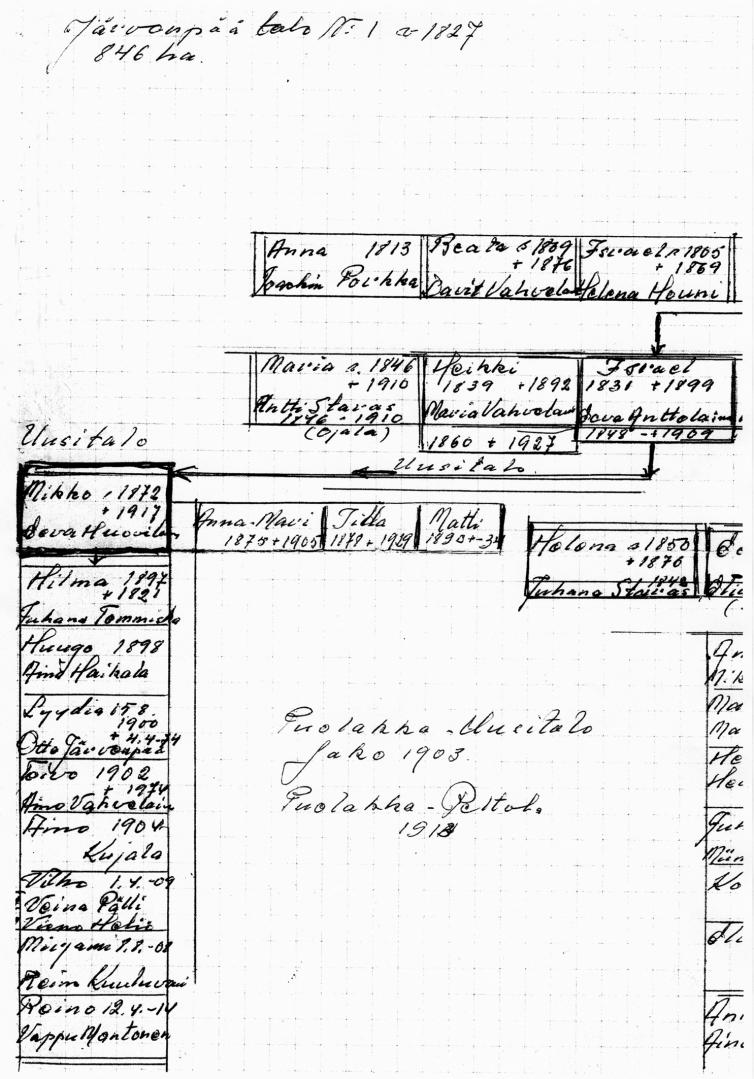 Järvenpää talo N: 1 v 1827
846 ha.
Anna 1813
Joachim Porkka
Beata s 1809
+ 1876
Davit Vahvelai
Israel s 1805
+ 1869
Helena Houni
Maria s. 1846
+ 1910
Antti Staras
1846 - 1910
(Ojala)
Heikki
1839 + 1892
Maria Vahvelai
1860 + 1927
Israel
1831 + 1899
Eeva Anttolai
1848 - + 1909
Uusitalo
Uusitalo
Mikko s 1872
+ 1917
Eeva Huovila
Anna-Mari
1875 + 1905
Tilta
1878 + 1929
Matti
1890 + -34
Helena s 1850
+ 1876
1842
Juhana Staras
Hilma 1897
+ 1821
Juhana Tommiska
Huugo 1898
Aino Haikala
Lyydia 15.8.
1900
+ 4.4-74
Otto Järvenpää
Toivo 1902
+ 1974
Aino Vahvelain
Aino 1904
Kujala
Vilho 1.4.-09
Veina Pälli
Mirjami 8.8.-08
Reino 12.4.-14
Vappu Mantonen
Puolakka - Uusitalo
Jako 1903.
Puolakka - Peltola
An
Mik
Ma
Ma
He
Hei
Juh
Miin
Ko
Ain